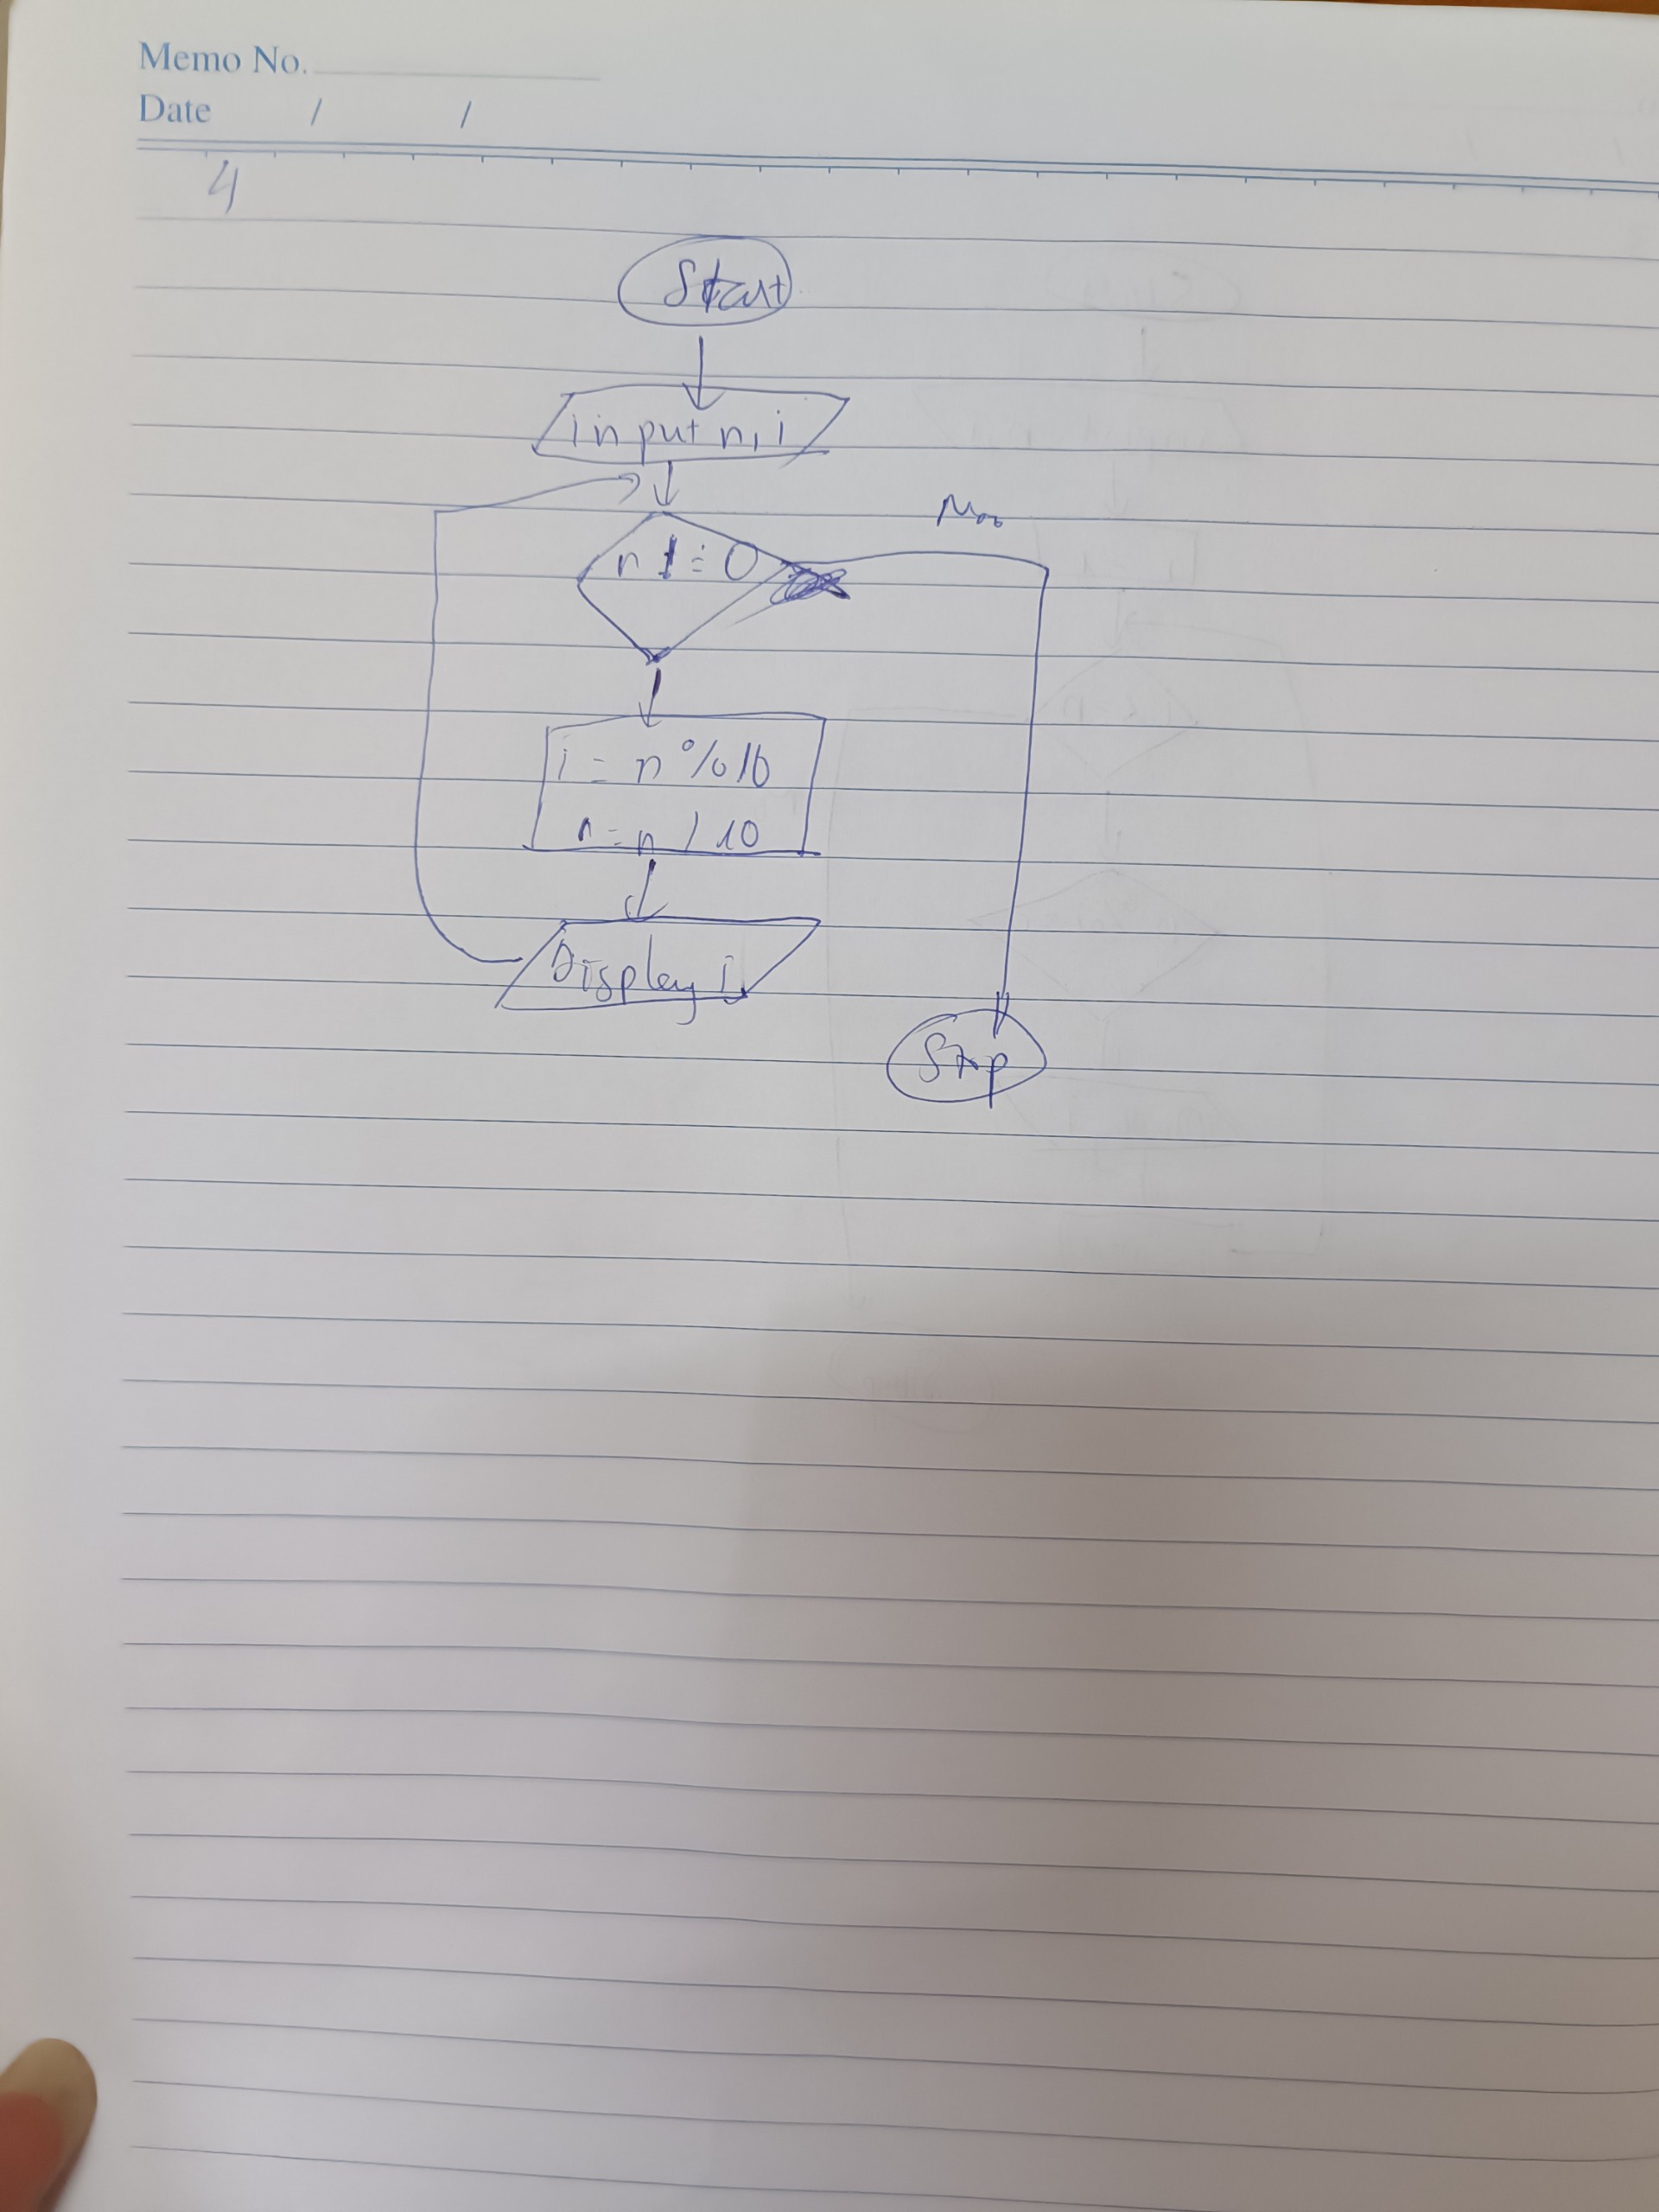 Memo No.
Date / /
4
Start
input n, i
n != 0
i = n % 10
n = n / 10
Display i
Stop